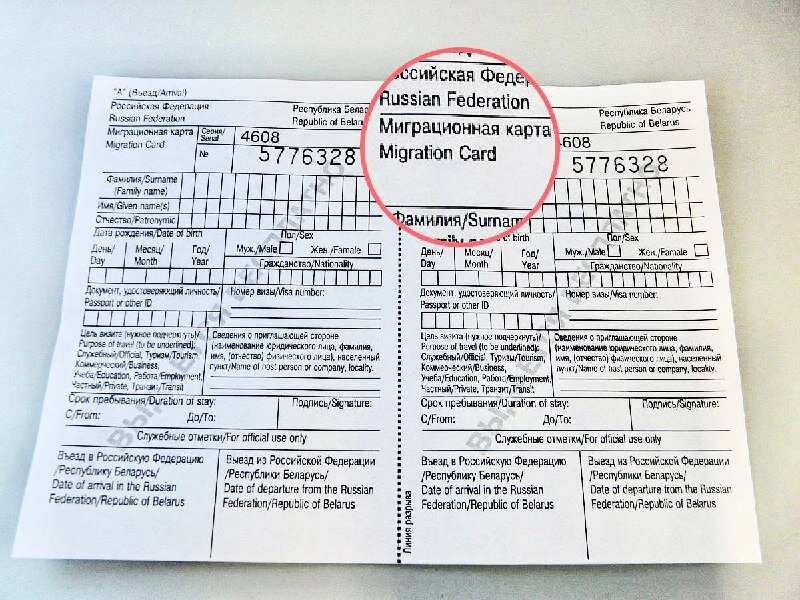 "А" (Въезд/Arrival)
Российская Федерация
Russian Federation
Республика Белар
Republic of Belar
Миграционная карта
Migration Card
Серия/
Serial
4608
№
5776328
Фамилия/Surname
(Family name)
Имя/Given name(s)
Отчество/Patronymic
Дата рождения/Date of birth
Пол/Sex
День/
Day
Месяц/
Month
Год/
Year
Муж./Male
Жен./Famale
Гражданство/Nationality
Документ, удостоверяющий личность/
Passport or other ID
Номер визы/Visa number:
Цель визита (нужное подчеркнуть)/
Purpose of travel (to be underlined):
Служебный/Official, Туризм/Tourism,
Коммерческий/Business,
Учеба/Education, Работа/Employment,
Частный/Private, Транзит/Transit
Сведения о приглашающей стороне
(наименование юридического лица, фамилия,
имя, (отчество) физического лица), населенный
пункт/Name of host person or company, locality.
Срок пребывания/Duration of stay:
С/From:
До/To:
Подпись/Signature:
Служебные отметки/For official use only
Въезд в Российскую Федерацию
/Республику Беларусь/
Date of arrival in the Russian
Federation/Republic of Belarus
Выезд из Российской Федерации
/Республики Беларусь/
Date of departure from the Russian
Federation/Republic of Belarus
ссийская Феде
Russian Federation
Миграционная карта
Migration Card
Фамилия/Surnam
Республика Беларусь
Republic of Belarus
4608
5776328
of birth
Пол/Sex
День/
Day
Месяц/
Month
Год/
Year
Муж./Male
Жен./Famale
Гражданство/Nationality
Документ, удостоверяющий личность/
Passport or other ID
Номер визы/Visa number:
Цель визита (нужное подчеркнуть)/
Purpose of travel (to be underlined):
Служебный/Official, Туризм/Tourism,
Коммерческий/Business,
Учеба/Education, Работа/Employment,
Частный/Private, Транзит/Transit
Сведения о приглашающей стороне
(наименование юридического лица, фамилия,
имя, (отчество) физического лица), населенный
пункт/Name of host person or company, locality.
Срок пребывания/Duration of stay:
С/From:
До/To:
Подпись/Signature:
Служебные отметки/For official use only
Въезд в Российскую Федерацию
/Республику Беларусь/
Date of arrival in the Russian
Federation/Republic of Belarus
Выезд из Российской Федерации
/Республики Беларусь/
Date of departure from the Russian
Federation/Republic of Belarus
Линия разрыва